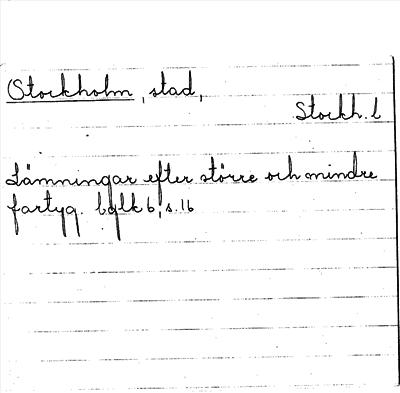 Stockholm, stad,
Stockh. l
Lämningar efter större och mindre
fartyg. bglk 6, s. 16